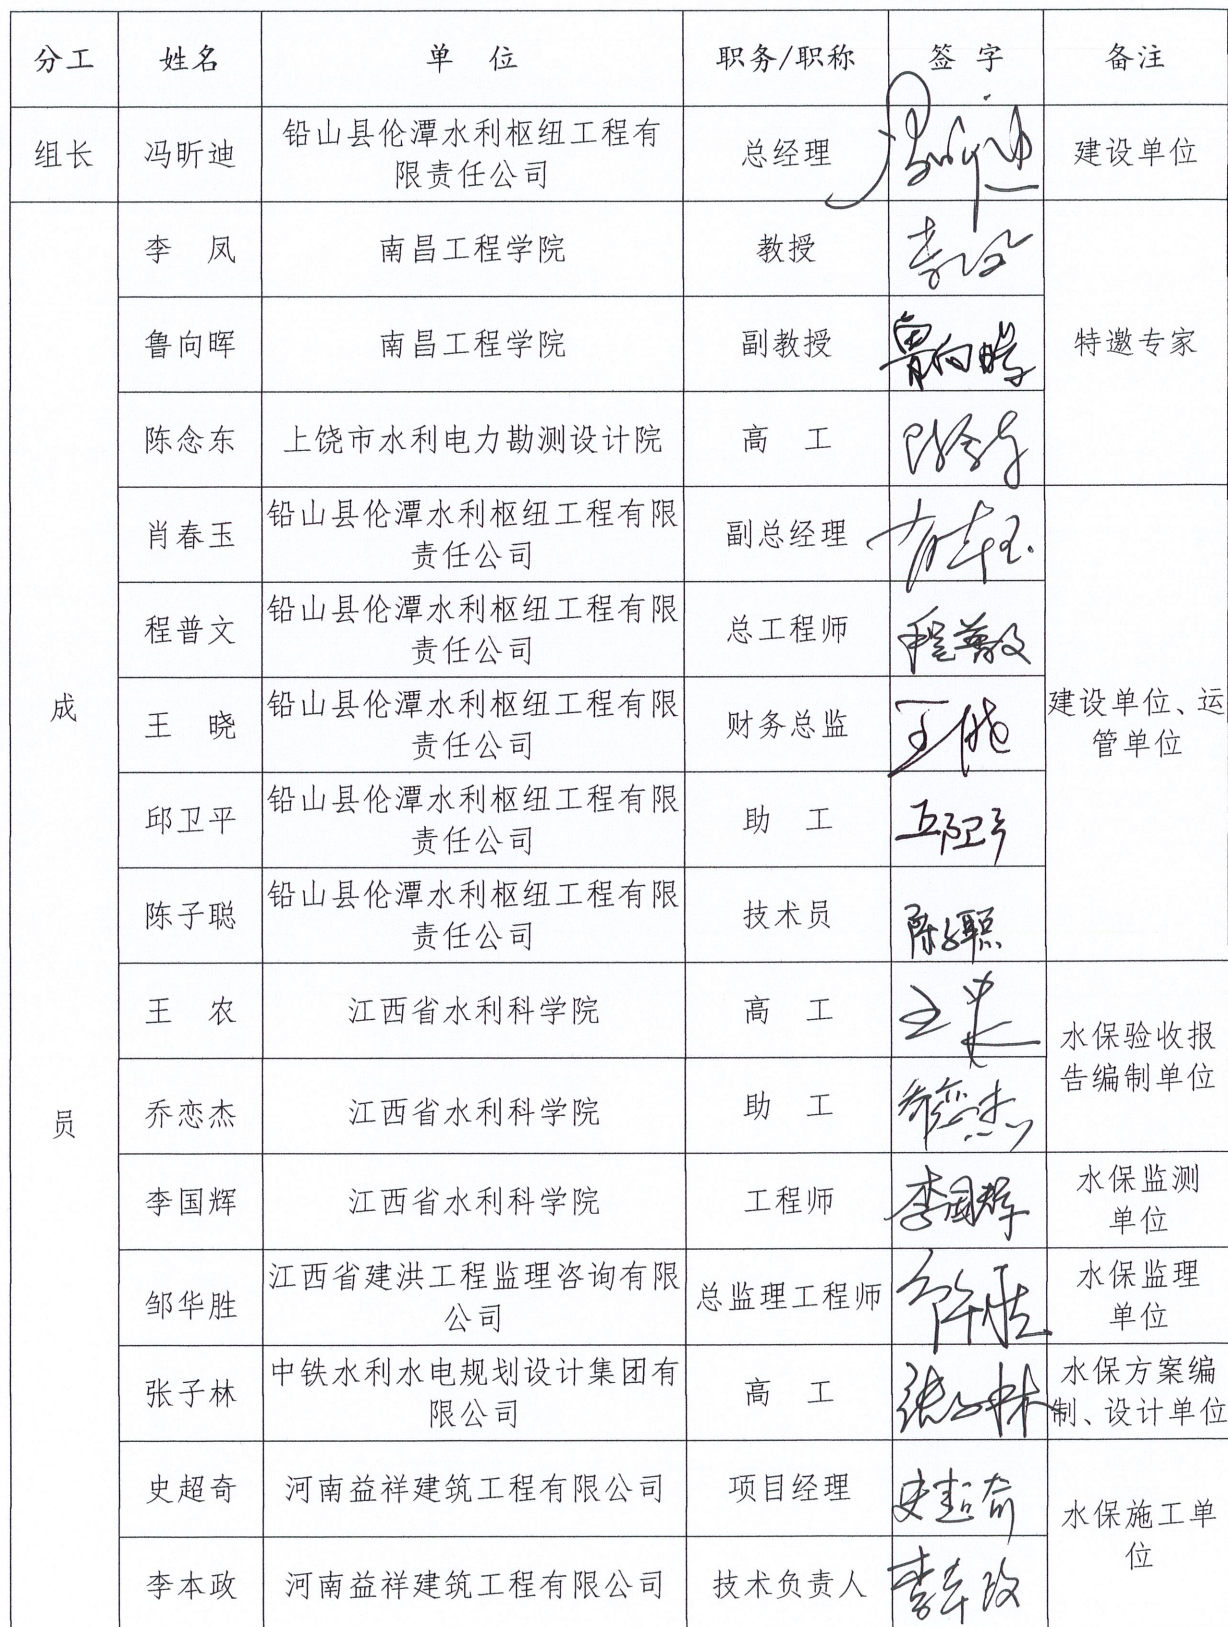 分工 姓名 单 位 职务/职称 签 字 备注
组长 冯昕迪 铅山县伦潭水利枢纽工程有
限责任公司 总经理 冯昕迪 建设单位
成
员
李 凤 南昌工程学院 教授 李凤
特邀专家
鲁向晖 南昌工程学院 副教授 鲁向晖
陈念东 上饶市水利电力勘测设计院 高 工 陈念东
肖春玉 铅山县伦潭水利枢纽工程有限
责任公司 副总经理 肖春玉
建设单位、运
管单位
程普文 铅山县伦潭水利枢纽工程有限
责任公司 总工程师 程普文
王 晓 铅山县伦潭水利枢纽工程有限
责任公司 财务总监 王晓
邱卫平 铅山县伦潭水利枢纽工程有限
责任公司 助 工 邱卫平
陈子聪 铅山县伦潭水利枢纽工程有限
责任公司 技术员 陈子聪
王 农 江西省水利科学院 高 工 王农
水保验收报
告编制单位
乔恋杰 江西省水利科学院 助 工 乔恋杰
李国辉 江西省水利科学院 工程师 李国辉 水保监测
单位
邹华胜 江西省建洪工程监理咨询有限
公司 总监理工程师 邹华胜 水保监理
单位
张子林 中铁水利水电规划设计集团有
限公司 高 工 张子林 水保方案编
制、设计单位
史超奇 河南益祥建筑工程有限公司 项目经理 史超奇
水保施工单
位
李本政 河南益祥建筑工程有限公司 技术负责人 李本政